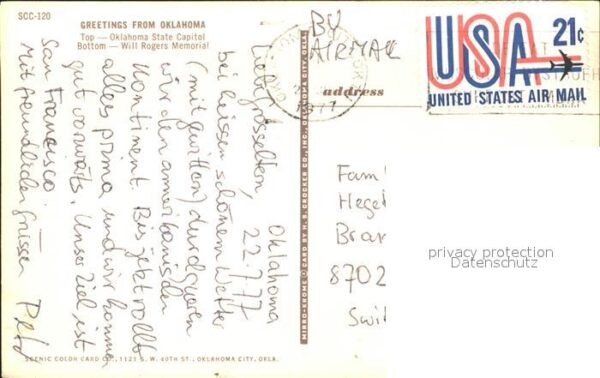 SCC-120
GREETINGS FROM OKLAHOMA
Top — Oklahoma State Capitol
Bottom — Will Rogers Memorial
BY
AIRMAIL
USA 21c
UNITED STATES AIR MAIL
1977
address
Oklahoma
22.7.77
Liebi Grosseltern,
bei heissem schönem Wetter
(mit gwitter) durchqueren
wir den amerikanischen
Kontinent. Bis jetzt rollt
alles prima und wir kommen
gut vorwärts. Unser Ziel ist
San Francisco.
Mit freundlichen Grüssen
MIRRO-KROME CARD BY H. S. CROCKER CO., INC., OKLAHOMA CITY, OKLA.
Fam
Heget
Bran
8702
Swit
privacy protection
Datenschutz
SCENIC COLOR CARD CO., 1121 S. W. 40TH ST., OKLAHOMA CITY, OKLA.